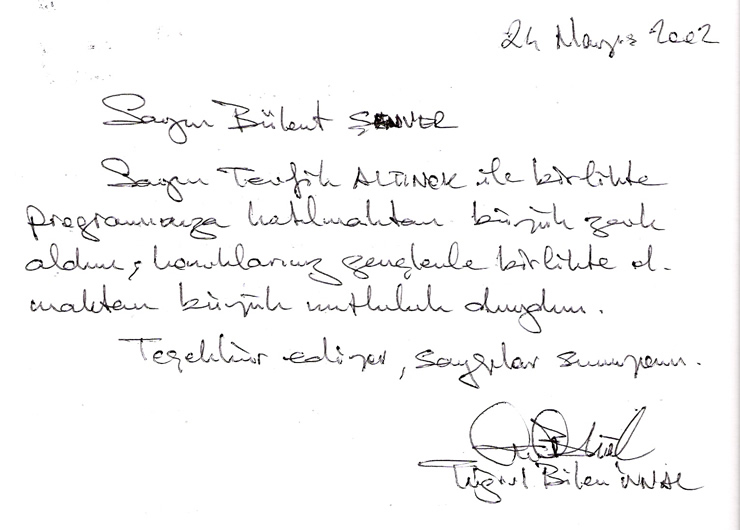 24 Mayıs 2002
Sayın Bülent ŞENVER
Sayın Tevfik ALTINOK ile birlikte
programınıza katılmaktan büyük zevk
aldım, konuklarınız gençlerle birlikte ol-
maktan büyük mutluluk duydum.
Teşekkür ediyor, saygılar sunuyorum.
Tuğrul Bilen ÜNAL